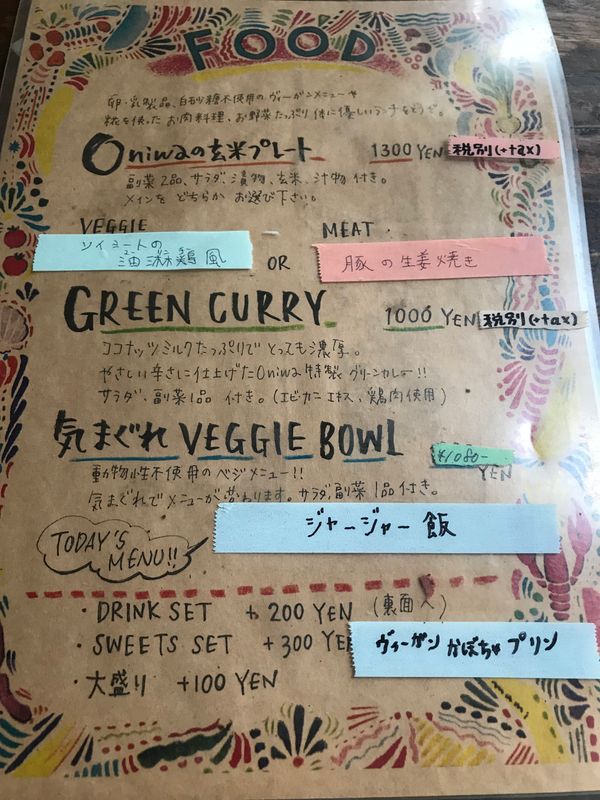 FOOD
卵・乳製品、白砂糖不使用のヴィーガンメニューや
糀を使ったお肉料理、お野菜たっぷり体に優しいランチをどうぞ。
Oniwaの玄米プレート 1300 YEN 税別(+tax)
副菜2品、サラダ、漬物、玄米、汁物 付き。
メインを どちらか お選び下さい。
VEGGIE
ソイミートの
油淋鶏風
OR
MEAT
豚の生姜焼き
GREEN CURRY 1000 YEN 税別(+tax)
ココナッツミルクたっぷりで とっても濃厚。
やさしい辛さに仕上げたOniwa特製 グリーンカレー!!
サラダ、副菜1品 付き。(エビ・カニエキス、鶏肉使用)
気まぐれ VEGGIE BOWL ¥1080- YEN
動物性不使用のベジメニュー!!
気まぐれでメニューが変わります。サラダ,副菜1品付き。
TODAY'S
MENU!!
ジャージャー飯
・DRINK SET +200 YEN (裏面へ)
・SWEETS SET +300 YE
ヴィーガン かぼちゃ プリン
・大盛り +100 YEN